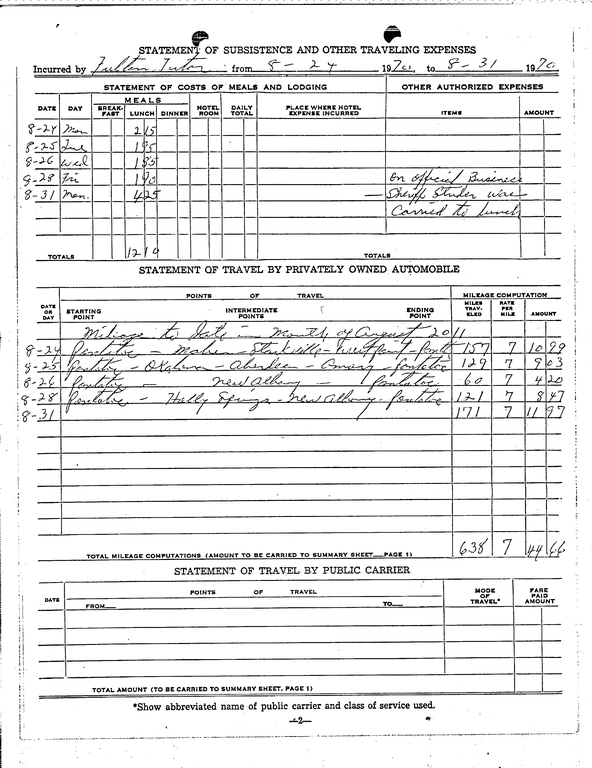 STATEMENT OF SUBSISTENCE AND OTHER TRAVELING EXPENSES
Incurred by Fulton Tutor from 8-24 1970, to 8-31 1970
STATEMENT OF COSTS OF MEALS AND LODGING OTHER AUTHORIZED EXPENSES
DATE DAY MEALS BREAK-FAST LUNCH DINNER HOTEL ROOM DAILY TOTAL PLACE WHERE HOTEL EXPENSE INCURRED ITEMS AMOUNT
8-24 Mon 2 15
8-25 Tue 1 95
8-26 Wed 1 85
8-28 Fri 1 90 On official Business
8-31 Mon. 4 25 — Sheriff Studer were
Carried to lunch
TOTALS 12 19 TOTALS
STATEMENT OF TRAVEL BY PRIVATELY OWNED AUTOMOBILE
DATE OR DAY POINTS OF TRAVEL MILEAGE COMPUTATION
STARTING POINT INTERMEDIATE POINTS ENDING POINT MILES TRAV-ELED RATE PER MILE AMOUNT
Mileage to Date in Month of August 2011
8-24 Pontotoc - Starkville - West Point - Pont 157 7 10 99
8-25 Pontotoc - Okolona - Aberdeen - Amory - Pontotoc 129 7 9 03
8-26 Pontotoc - New Albany - Pontotoc 60 7 4 20
8-28 Pontotoc - Holly Springs - New Albany - Pontotoc 121 7 8 47
8-31 171 7 11 97
TOTAL MILEAGE COMPUTATIONS (AMOUNT TO BE CARRIED TO SUMMARY SHEET—PAGE 1) 638 7 44 66
STATEMENT OF TRAVEL BY PUBLIC CARRIER
DATE POINTS OF TRAVEL MODE OF TRAVEL* FARE PAID AMOUNT
FROM— TO—
TOTAL AMOUNT (TO BE CARRIED TO SUMMARY SHEET, PAGE 1)
*Show abbreviated name of public carrier and class of service used.
—2—